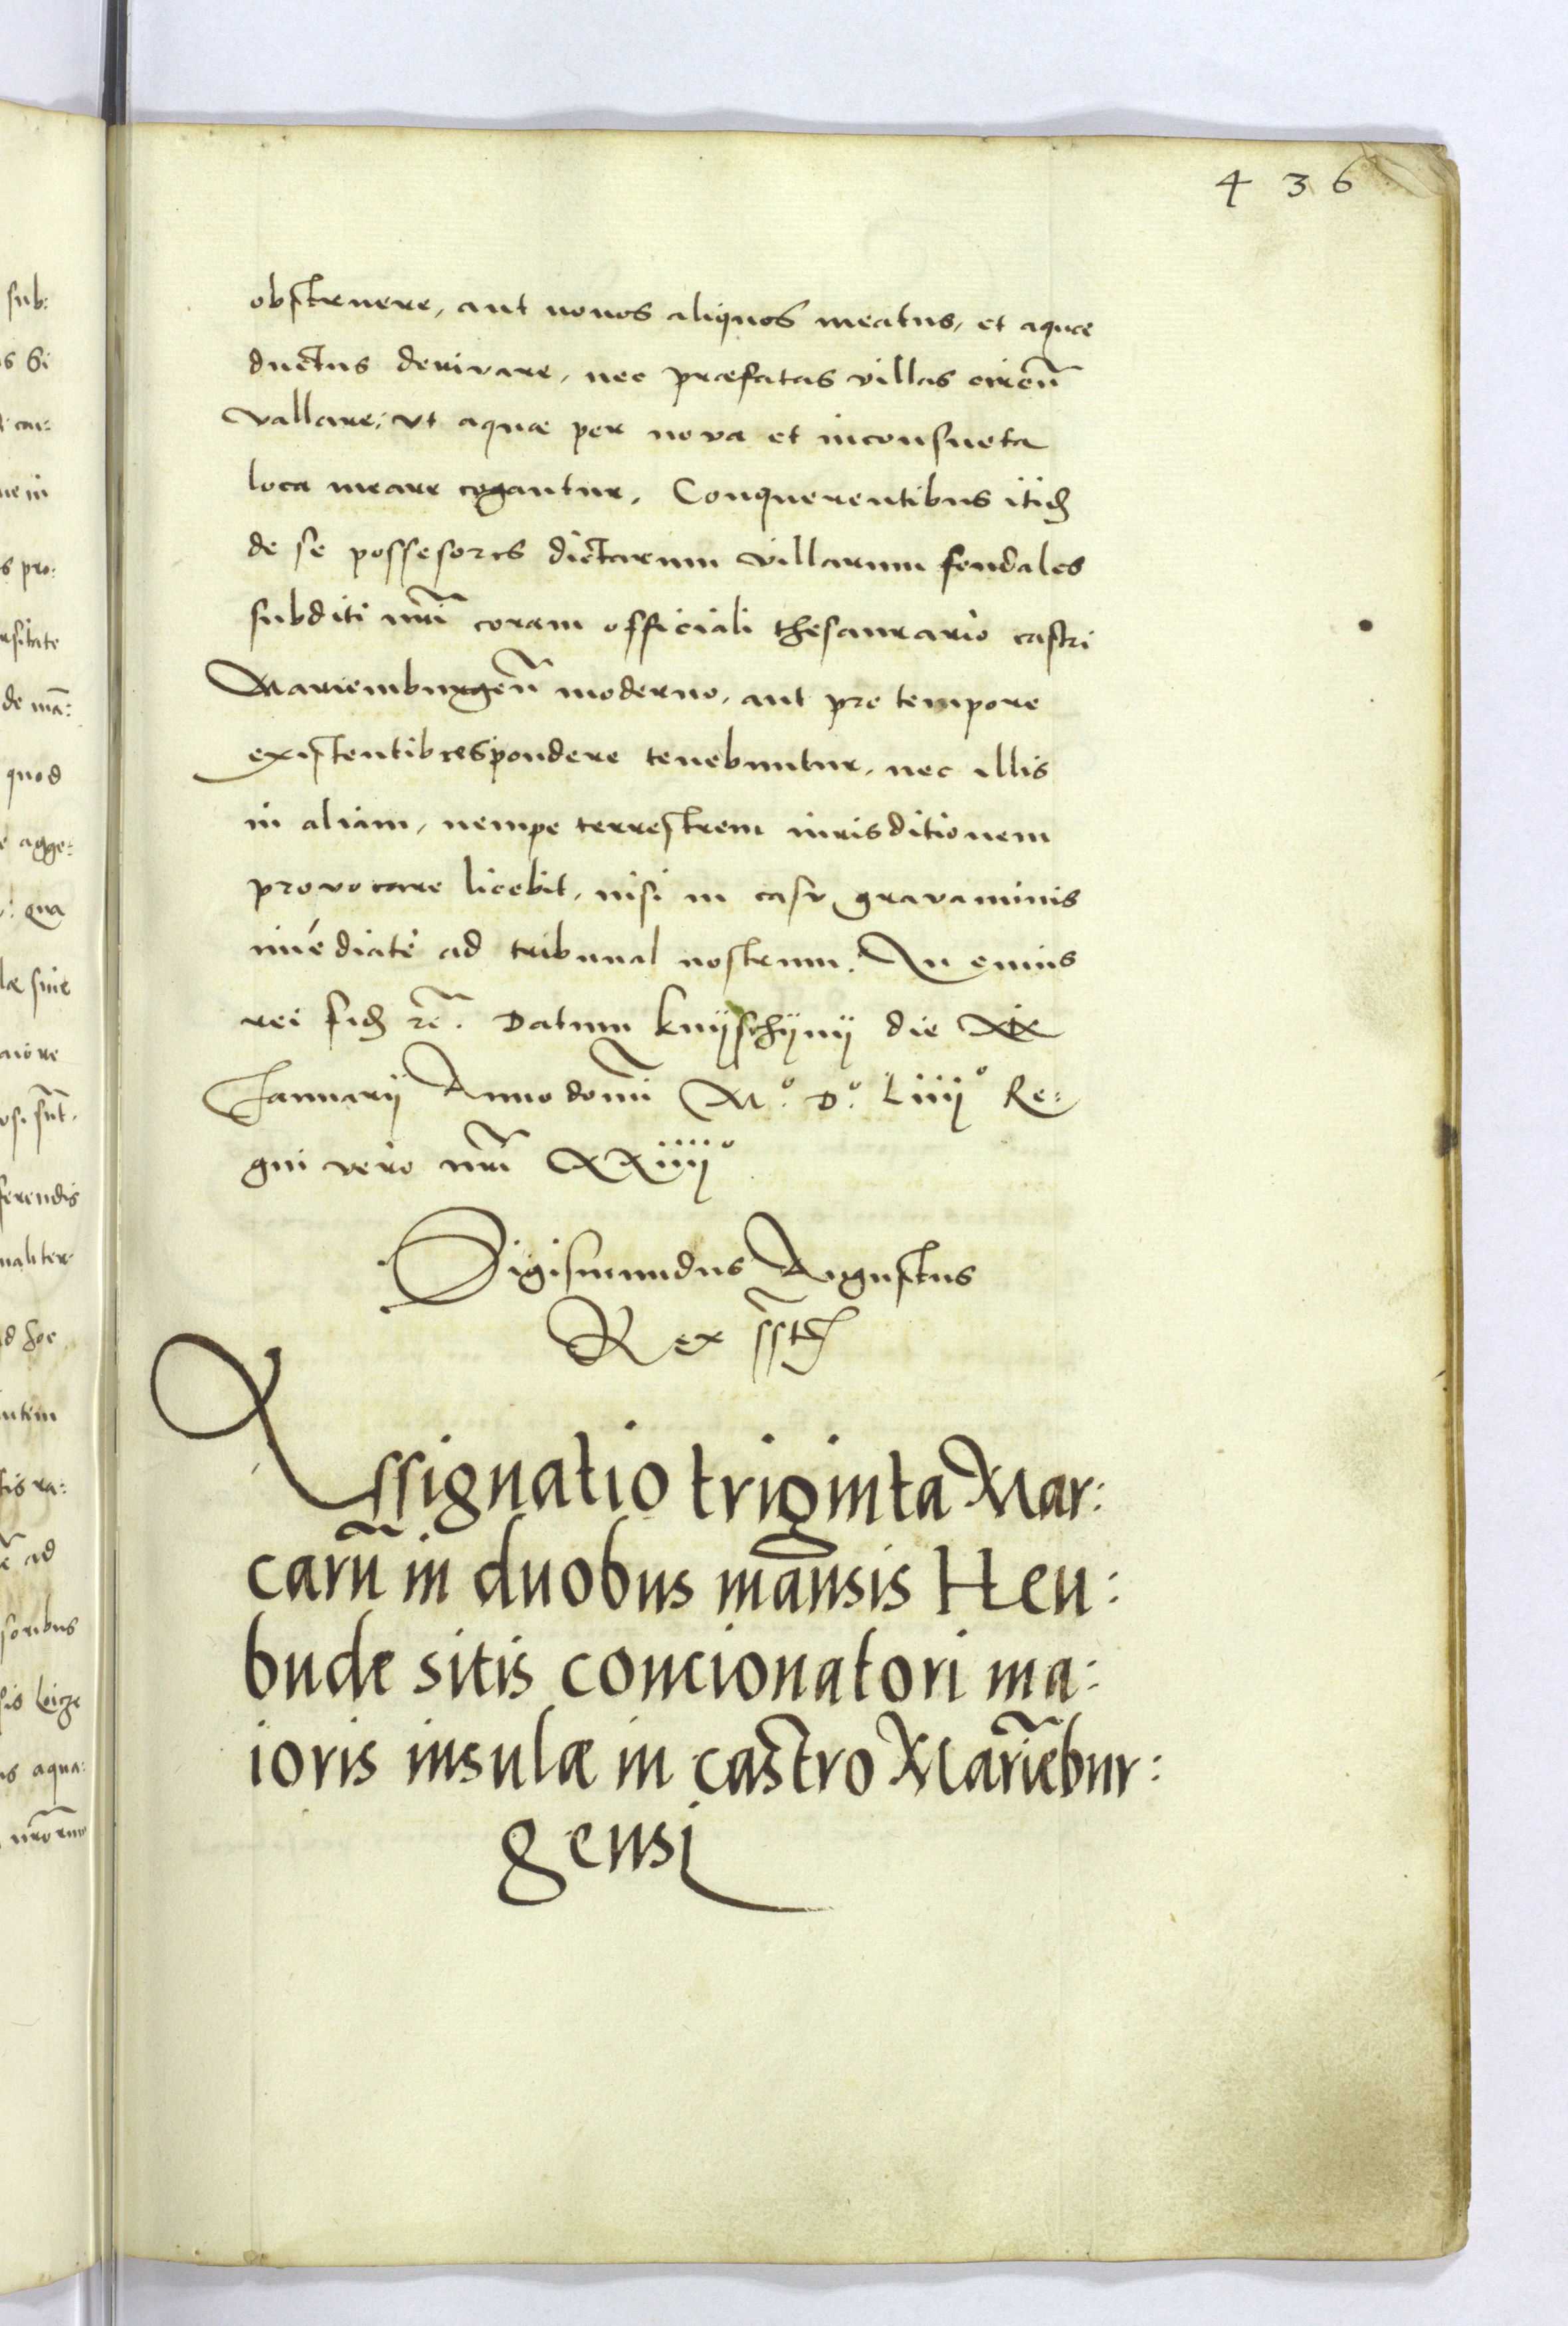 436
obstruere, aut nouos aliquos meatus, et aquæ
ductus derivare, nec præfatas villas circũ
vallare, vt aquæ per nova et inconsueta
loca meare cogantur. Conquerentibus itidẽ
de se possesores dictarum villarum feudales
subditi nr̃i coram officiali thesaurario castri
Mariemburgen̄ moderno, aut pro tempore
existenti respondere tenebuntur, nec illis
in aliam, nempe terrestrem iurisditionem
provocare licebit, nisi in casu gravaminis
im̃ediate ad tribunal nostrum. In cuius
rei fidẽ rc̃. Datum Knyschyny die xix
Januarij Anno domĩ M°. D°. Liiij° Re:
gni vero nr̃i XXiiij°
Sigismundus Augustus
Rex sst
Assignatio triginta Mar:
carũ in duobus mãnsis Heu:
bude sitis concionatori ma:
ioris insulæ in castro Mariẽbur:
gensi
sub:
quod
agge:
qua
ferendis
ad
aqua: